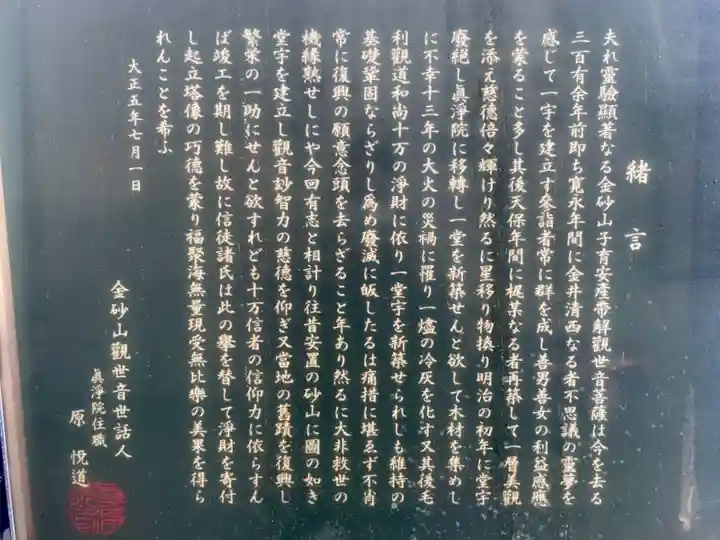 緒言
夫れ靈驗顯著なる金砂山子育安産帶解觀世音菩薩は今を去る
三百有余年前即ち寛永年間に金井清西なる者不思議の靈夢を
感じて一宇を建立す参詣者常に群を成し善男善女の利益應應
を蒙ること多し其後天保年間に梶某なる者再築して一層美觀
を添え慈德倍々輝けり然るに星移り物換り明治の初年に堂宇
廢絶し眞淨院に移轉し一堂を新築せんと欲して木材を集めし
に不幸十三年の大火の災禍に罹り一爐の冷灰を化す又其後毛
利觀道和尚十万の淨財に依り一堂宇を新築せられしも維持の
基礎鞏固ならざりし爲め廢滅に皈したるは痛措に堪ゑず不肖
常に復興の願意念頭を去らざること年あり然るに大非救世の
機緣熟せしにや今回有志と相計り往昔安置の砂山に圖の如き
堂宇を建立し觀音妙智力の慈德を仰ぎ又當地の舊蹟を復興し
繁榮の一助にせんと欲すれども十万信者の信仰力に依らずん
ば竣工を期し難し故に信徒諸氏は此の擧を替して淨財を寄付
し起立塔像の巧德を蒙り福聚海無量現受無比樂の美果を得ら
れんことを希ふ
大正五年七月一日
金砂山觀世音世話人
眞淨院住職
原悅道